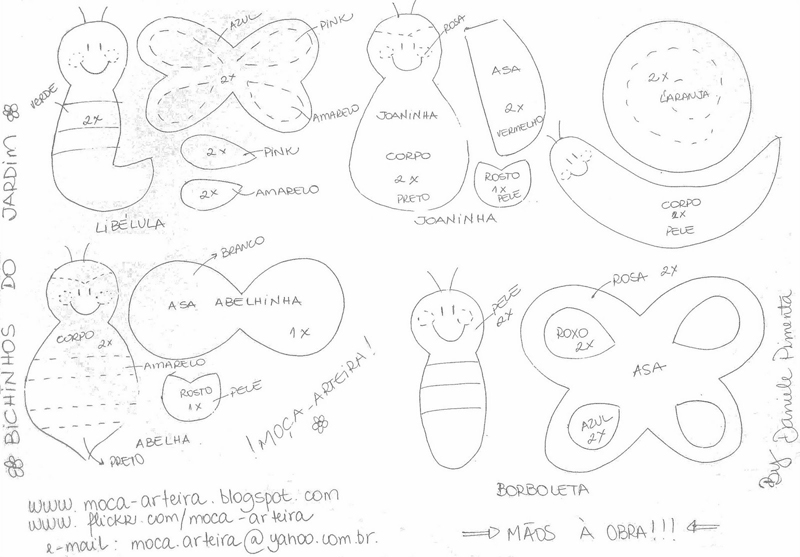 BICHINHOS DO JARDIM
VERDE
2x
AZUL
PINK
2x
AMARELO
2x
PINK
2x
AMARELO
LIBÉLULA
ROSA
JOANINHA
CORPO
2x
PRETO
ASA
2x
VERMELHO
ROSTO
1x
PELE
JOANINHA
2x
LARANJA
CORPO
2x
PELE
CORPO
2x
AMARELO
PRETO
BRANCO
ASA ABELHINHA
1x
ROSTO
1x
PELE
ABELHA
! MOÇA-ARTEIRA!
PELE
2x
ROSA 2x
ROXO
2x
ASA
AZUL
2x
BORBOLETA
By Daniele Pimenta
www.moca-arteira.blogspot.com
www.flickr.com/moca-arteira
e-mail: moca.arteira@yahoo.com.br.
MÃOS À OBRA!!!